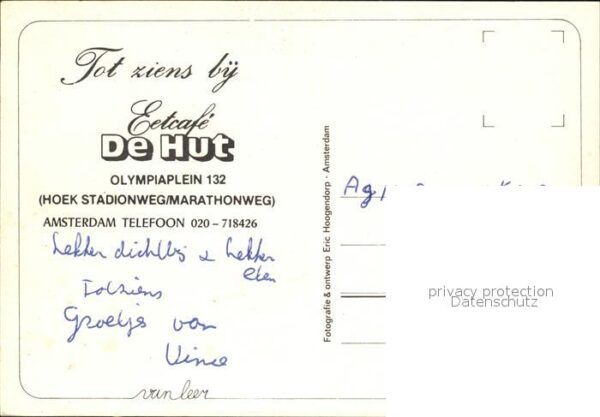 Tot ziens bij
Eetcafé
De Hut
OLYMPIAPLEIN 132
(HOEK STADIONWEG/MARATHONWEG)
AMSTERDAM TELEFOON 020 – 718426
Lekker dichtbij & lekker
eten
Totziens
Groetjes van
Vince
van leer
Fotografie & ontwerp Eric Hoogendorp - Amsterdam
privacy protection
Datenschutz